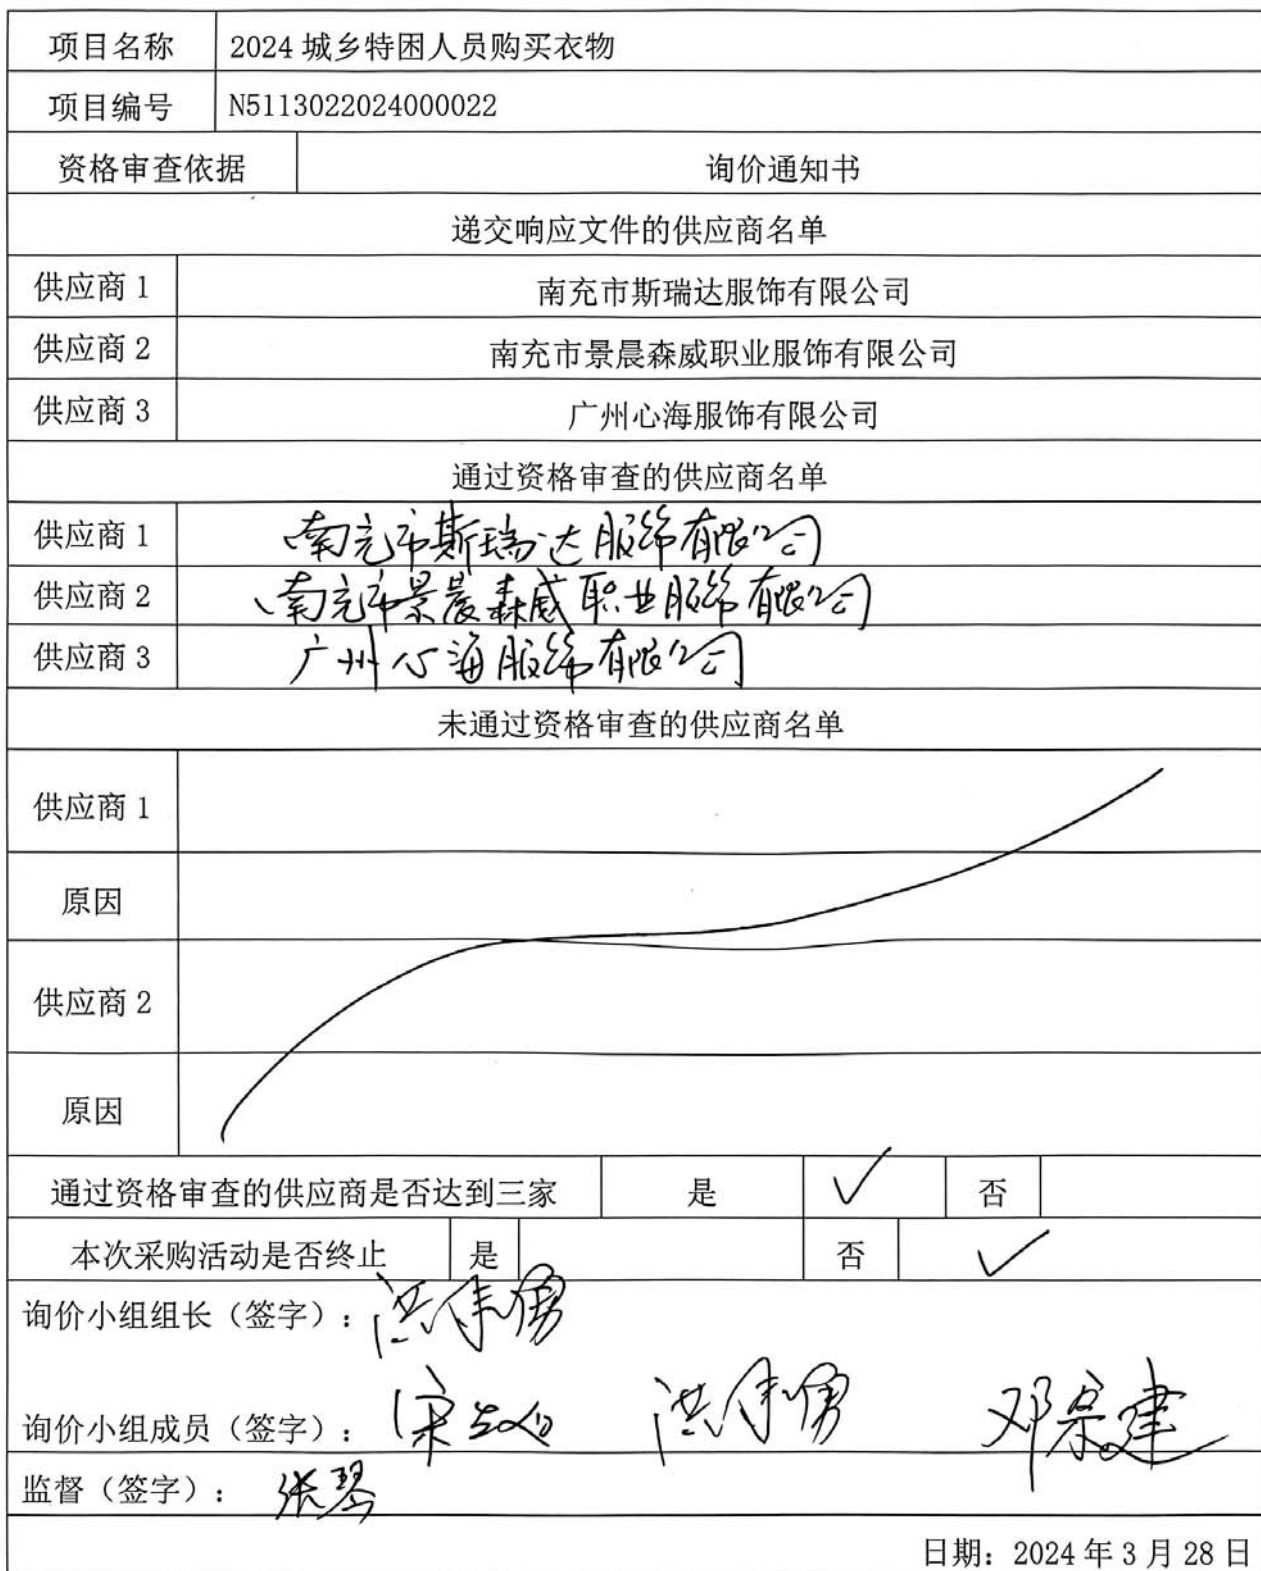 项目名称 2024 城乡特困人员购买衣物
项目编号 N5113022024000022
资格审查依据 询价通知书
递交响应文件的供应商名单
供应商 1 南充市斯瑞达服饰有限公司
供应商 2 南充市景晨森威职业服饰有限公司
供应商 3 广州心海服饰有限公司
通过资格审查的供应商名单
供应商 1 南充市斯瑞达服饰有限公司
供应商 2 南充市景晨森威职业服饰有限公司
供应商 3 广州心海服饰有限公司
未通过资格审查的供应商名单
供应商 1
原因
供应商 2
原因
通过资格审查的供应商是否达到三家 是 ✓ 否
本次采购活动是否终止 是 否 ✓
询价小组组长（签字）：
询价小组成员（签字）： 邓宗建
监督（签字）： 张琴
日期：2024 年 3 月 28 日